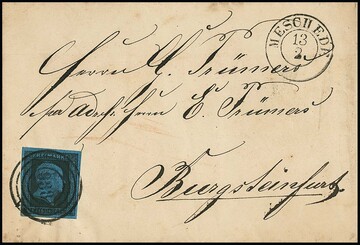 MESCHEDE
13
2
Herrn C. Trümers
per Adr. Herrn E. Trümers
Burgsteinfurt